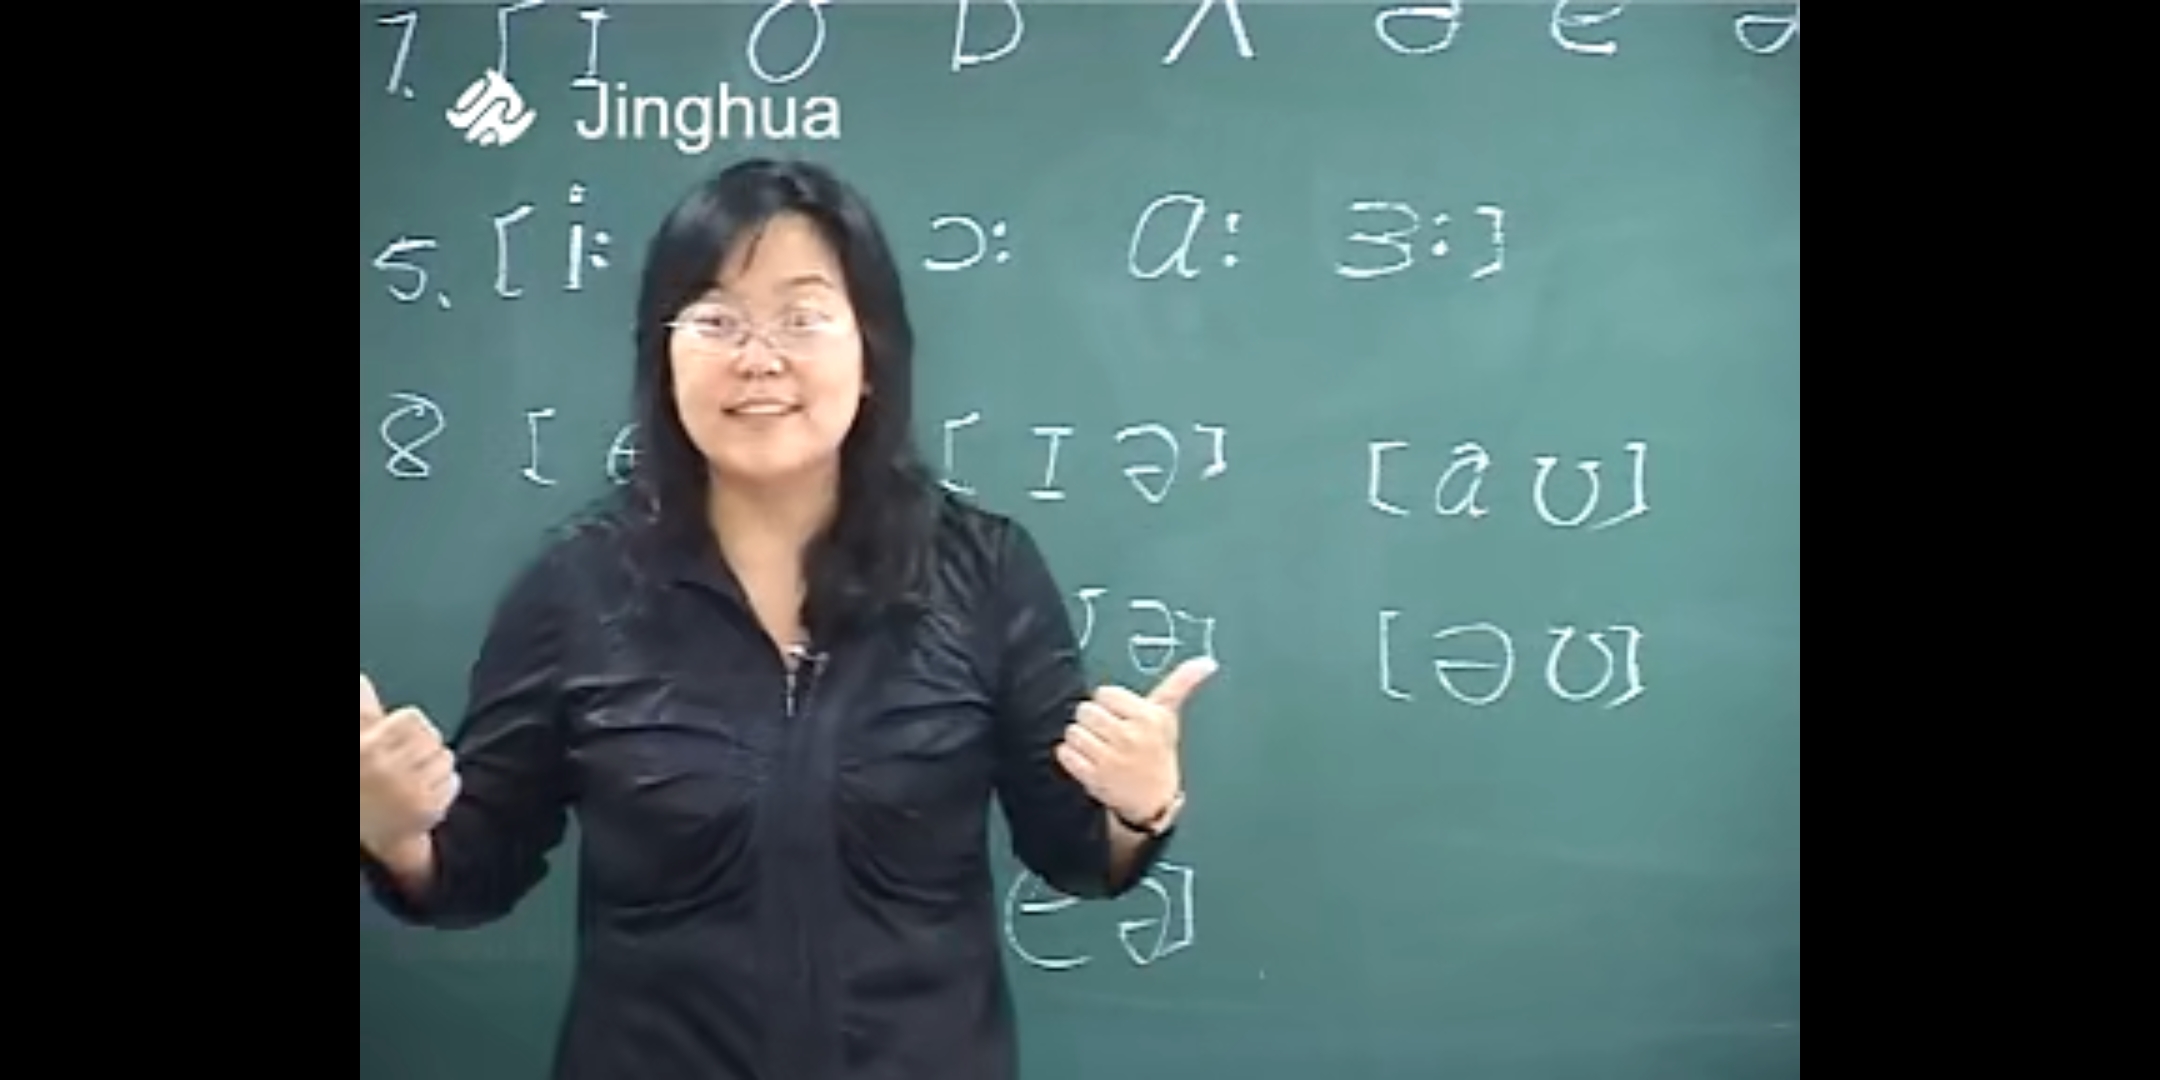 7. [ɪ ʊ ɒ ʌ ə e
Jinghua
5. [i: ɔ: ɑ: ɜ:]
8 [e [ɪə] [aʊ]
ə] [əʊ]
eə]